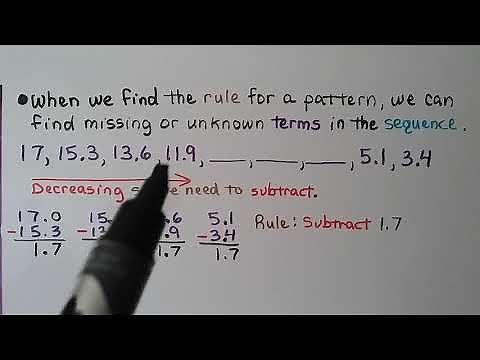 ●When we find the rule for a pattern, we can
find missing or unknown terms in the sequence.
17, 15.3, 13.6, 11.9, ___, ___, ___, 5.1, 3.4
Decreasing need to subtract.
17.0 15. .6 5.1 Rule: Subtract 1.7
-15.3 -1 .9 -3.4
1.7 1.7 1.7 1.7